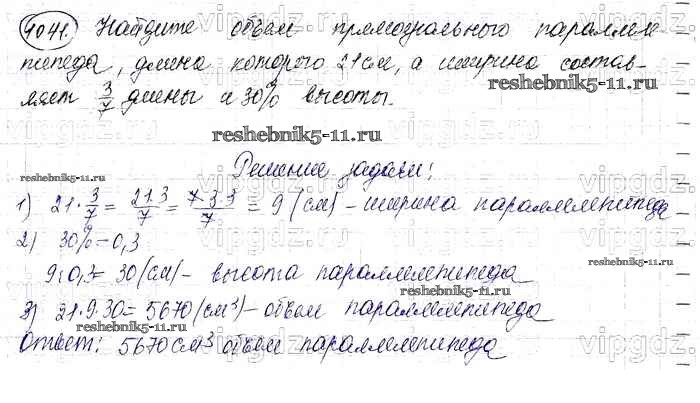 1041. Найдите объем прямоугольного параллеле-
пипеда, длина которого 21 см, а ширина состав-
ляет 3/7 длины и 30% высоты.
reshebnik5-11.ru
reshebnik5-11.ru
Решение задачи:
reshebnik5-11.ru
1) 21·3/7 = 21·3/7 = 7·3·3/7 = 9 (см) – ширина параллелепипеда
2) 30% = 0,3
reshebnik5-11.ru
9:0,3 = 30 (см) – высота параллелепипеда
3) 21·9·30 = 5670 (см³) – объем параллелепипеда
reshebnik5-11.ru
reshebnik5-11.ru
Ответ: 5670 см³ объем параллелепипеда
vipgdz.ru